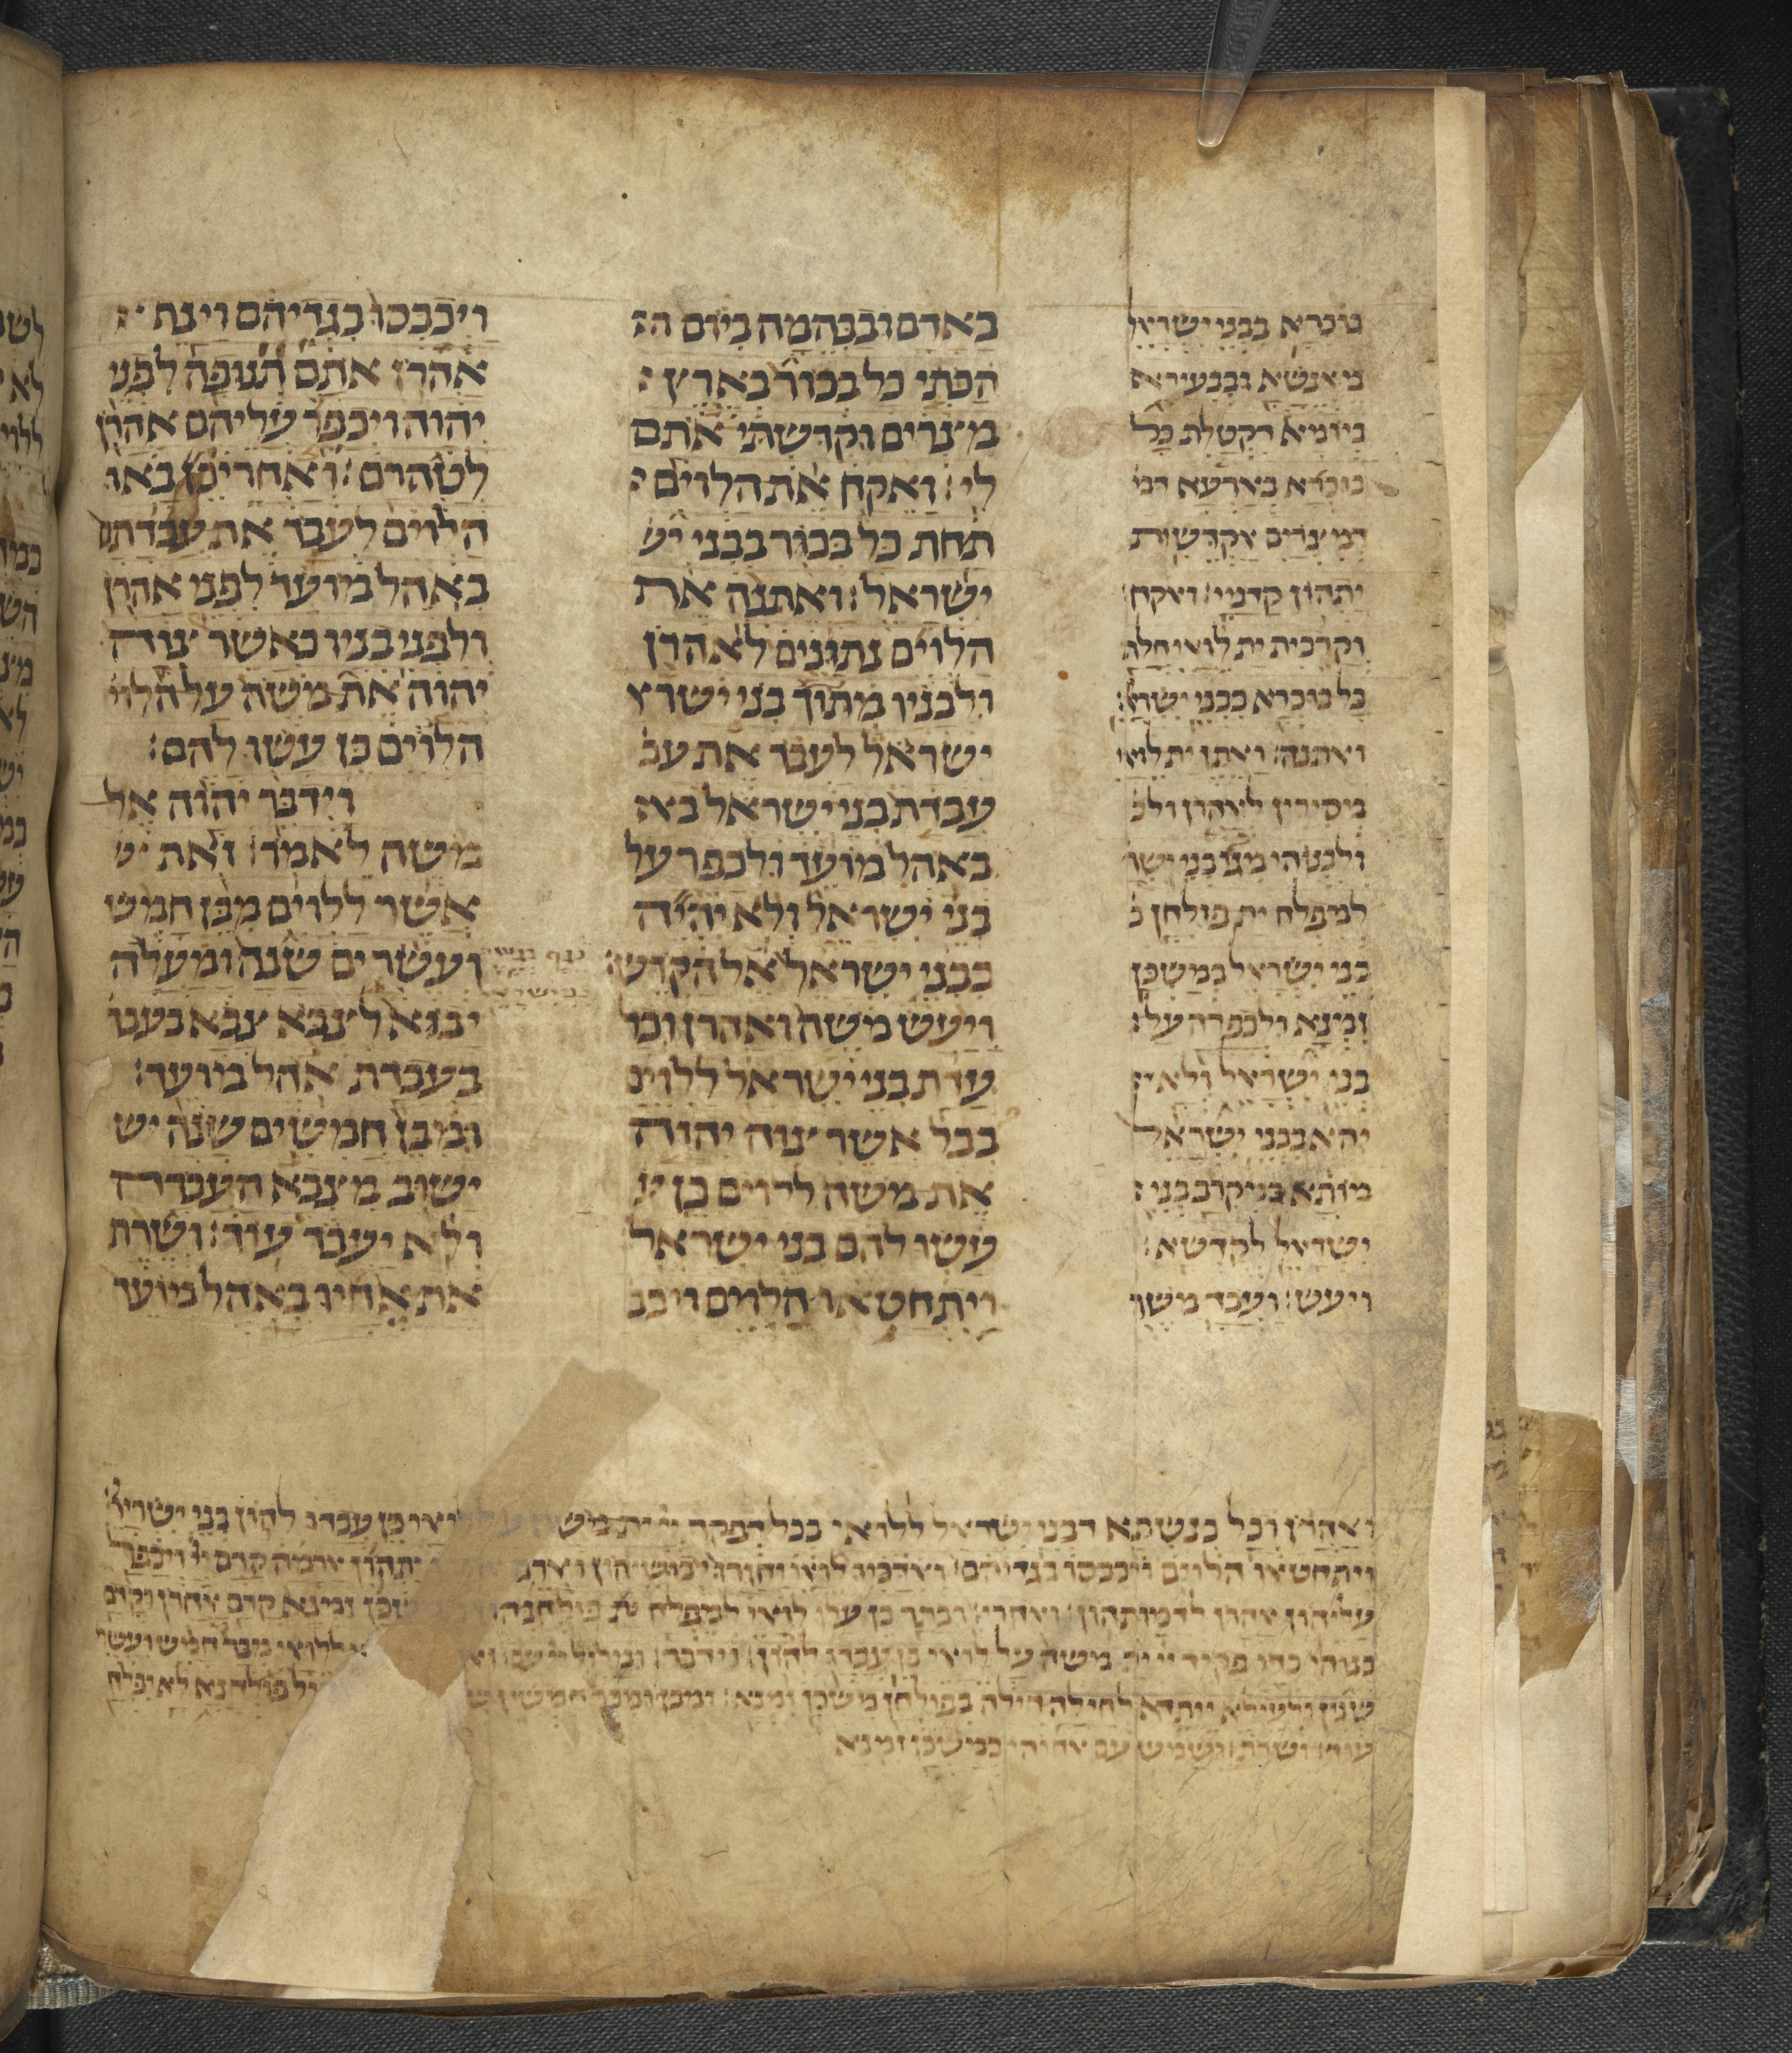 בוכרא בבני ישראל
מאנשא ובבעירא
ביומא דקטלית כל
בוכרא בארעא דמ
דמצרים אקדשית
יתהון קדמי׃ ואקח׃
וקרבית ית לואי חלף
כל בוכרא בבני ישרא׃
ואתנה׃ ויהבית ית לואי
מסירין לאהרן ולב
ולבנוהי מגו בני ישר
למפלח ית פולחן ב
בני ישראל במשכן
זמנא ולכפרה על׃
בני ישראל ולא י
יהא בבני ישראל
מותא במקרב בני
ישראל לקדשא׃
ויעש׃ ועבד משה
באדם ובבהמה ביום ה
הכתי כל בכור בארץ
מצרים הקדשתי אתם
לי׃ ואקח את הלוים
תחת כל בכור בבני יש
ישראל׃ ואתנה את
הלוים נתנים לאהרן
ולבניו מתוך בני ישרא
ישראל לעבד את עב
עבדת בני ישראל בא
באהל מועד ולכפר על
בני ישראל ולא יהיה
בבני ישראל אל הקדש׃
ויעש משה ואהרן וכל
עדת בני ישראל ללוים
ככל אשר צוה יהוה
את משה ללוים כן ע
עשו להם בני ישראל
ויתחטאו הלוים ויכב
ויכבסו בגדיהם וינף
אהרן אתם תנופה לפני
יהוה ויכפר עליהם אהרן
לטהרם׃ ואחרי כן באו
הלוים לעבד את עבדתם
באהל מועד לפני אהרן
ולפני בניו כאשר צוה
יהוה את משה על הלוי
הלוים כן עשו להם׃
וידבר יהוה אל
משה לאמר׃ זאת
אשר ללוים מבן חמש
ועשרים שנה ומעלה
יבוא לצבא צבא בעב
בעבדת אהל מועד׃
ומבן חמשים שנה יש
ישוב מצבא העבדה
ולא יעבד עוד׃ ושרת
את אחיו באהל מועד
ואהרן וכל כנשתא דבני ישראל ללואי ככל דפקיד יי ית משה כן עבדו להון בני ישראל׃
ויתחטאו הלוים ויכבסו בגדיהם׃ ואדכיו לואי וחורו לבושיהון וארים יתהון ארמה קדם יי וכפר
עליהון אהרן לדכותהון׃ ואחרי׃ ובתר כן עלו לואי למפלח ית פולחנהון זמנא קדם אהרן וקדם
בנוהי כמא דפקיד יי ית משה על לואי כן עבדו להון׃ וידבר׃ ומליל ללואי מבר חמש ועשר
שנין ולעילא ייתי לחילא חילא בפולחן משכן זמנא׃ ומבן׃ ומבר חמשין פולחנא לא יפלח
עוד׃ ושרת׃ וישמש עם אחוהי במשכן זמנא